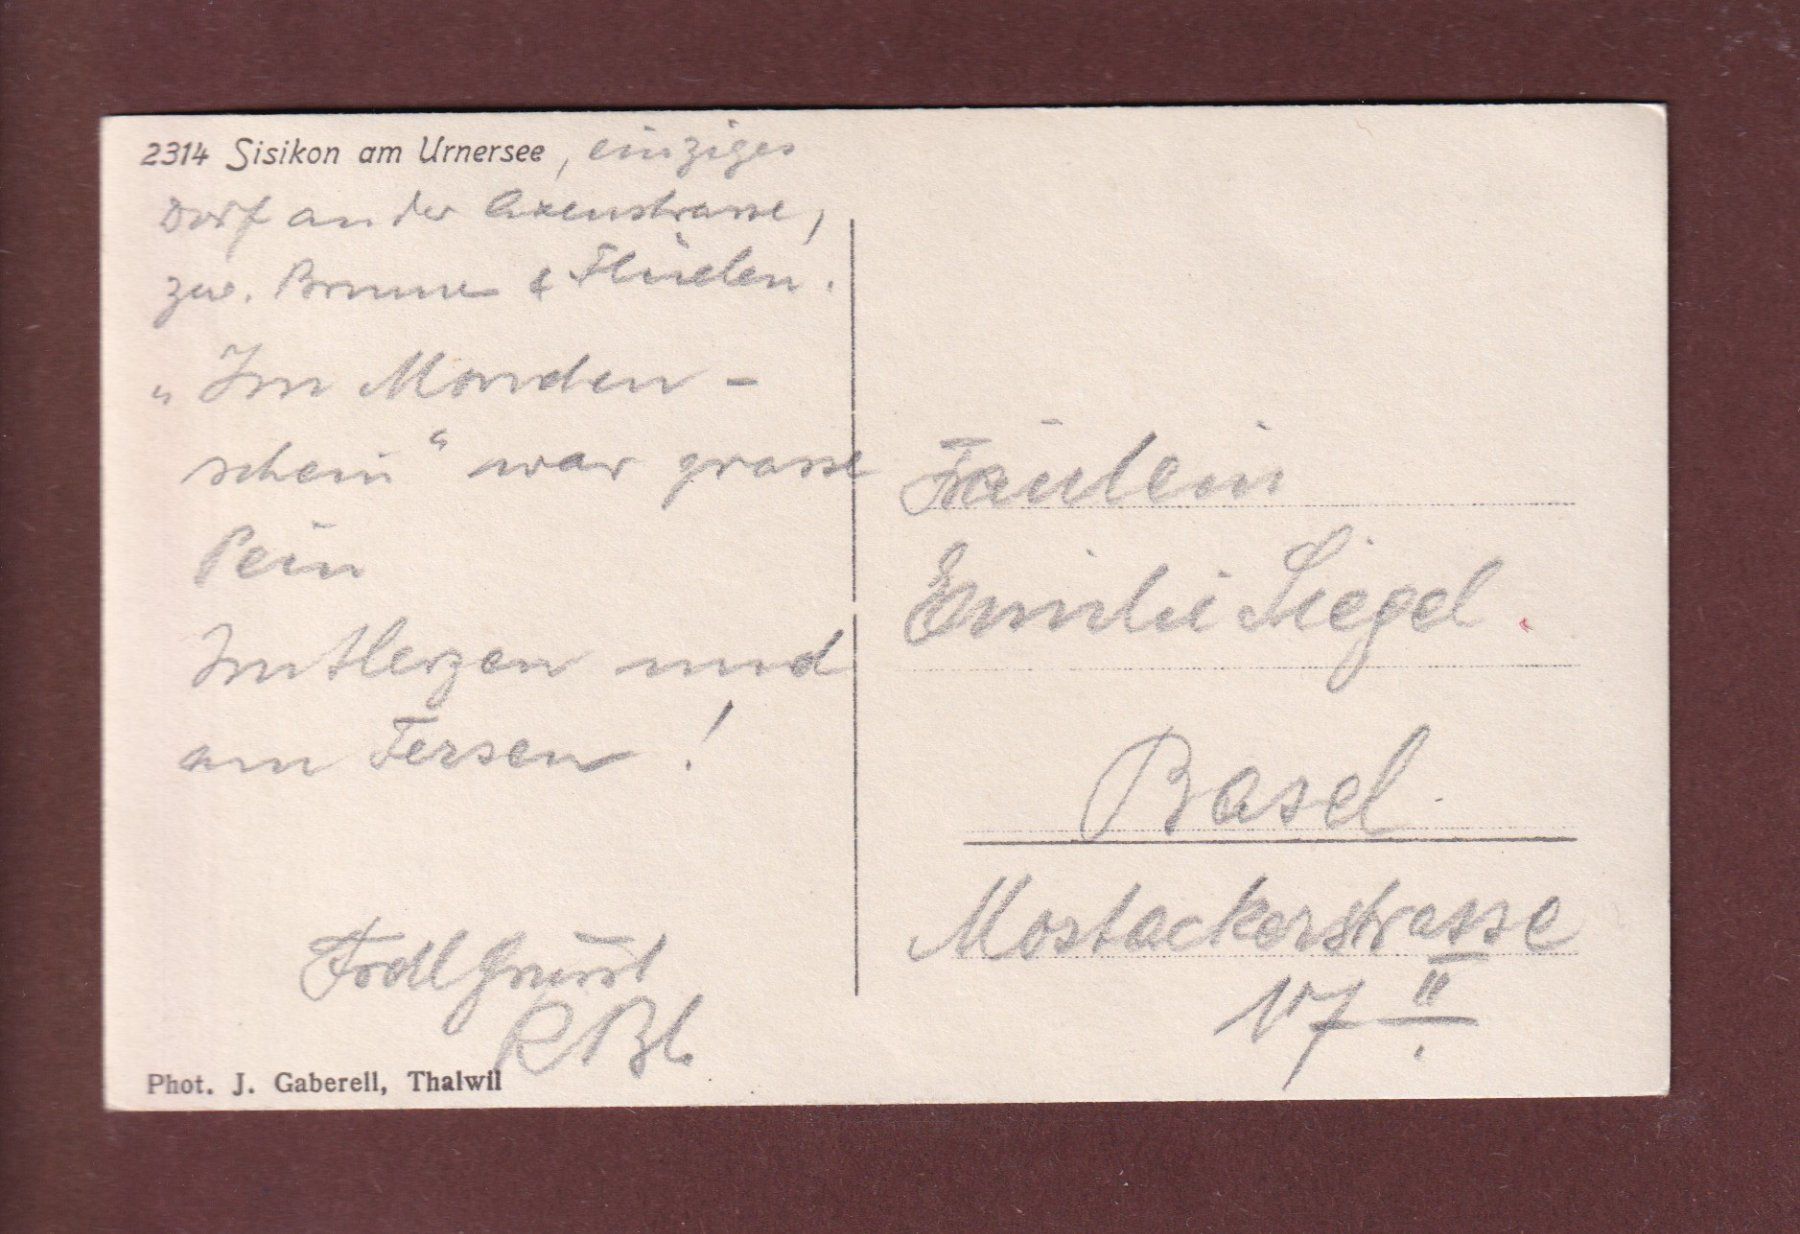 2314 Sisikon am Urnersee, einziges
Dorf an der Axenstrasse,
zw. Brunnen & Flüelen.
„Im Monden-
schein“ war grosse
Pein
Im Herzen und
am Fersen!
Frdl Grüsst
R Bl.
Phot. J. Gaberell, Thalwil
Fräulein
Emilie Siegel.
Basel.
Mostackerstrasse
17 II